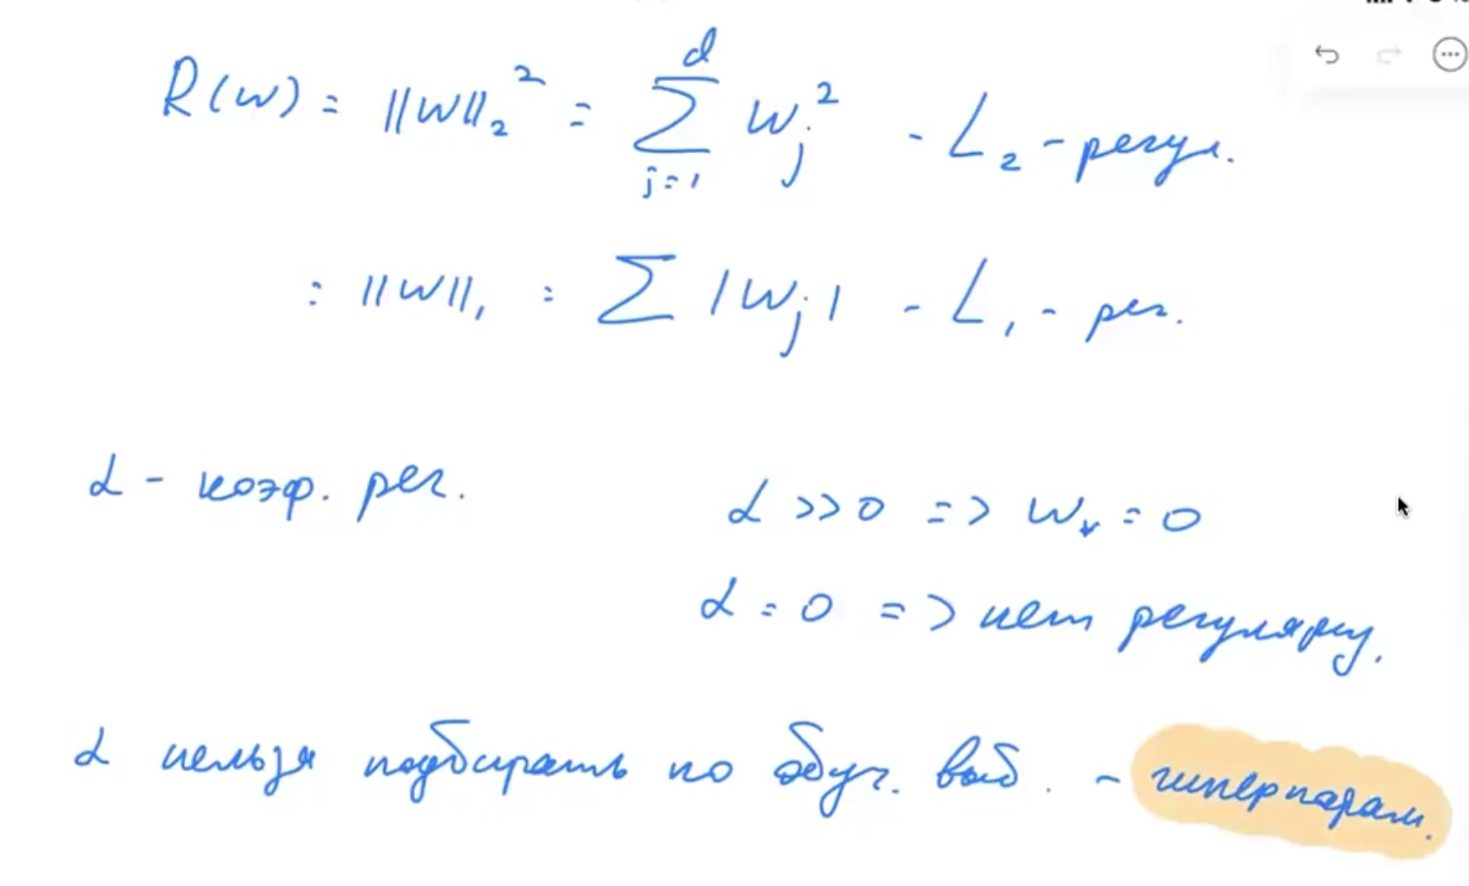 R(w) = ||w||₂² = ∑_{j=1}^{d} w_j² - L₂ - регул.
= ||w||₁ = ∑ |w_j| - L₁ - рег.
α - коэф. рег.
α >> 0 => w_* = 0
α = 0 => нет регуляриз.
α нельзя подбирать по обуч. выб. - гиперпарам.